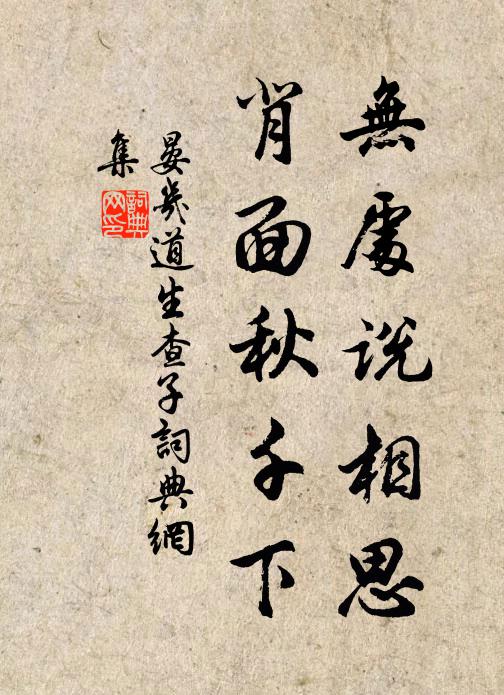 無處説相思
背面秋千下
晏幾道生查子詞典網
集
詞典
网印